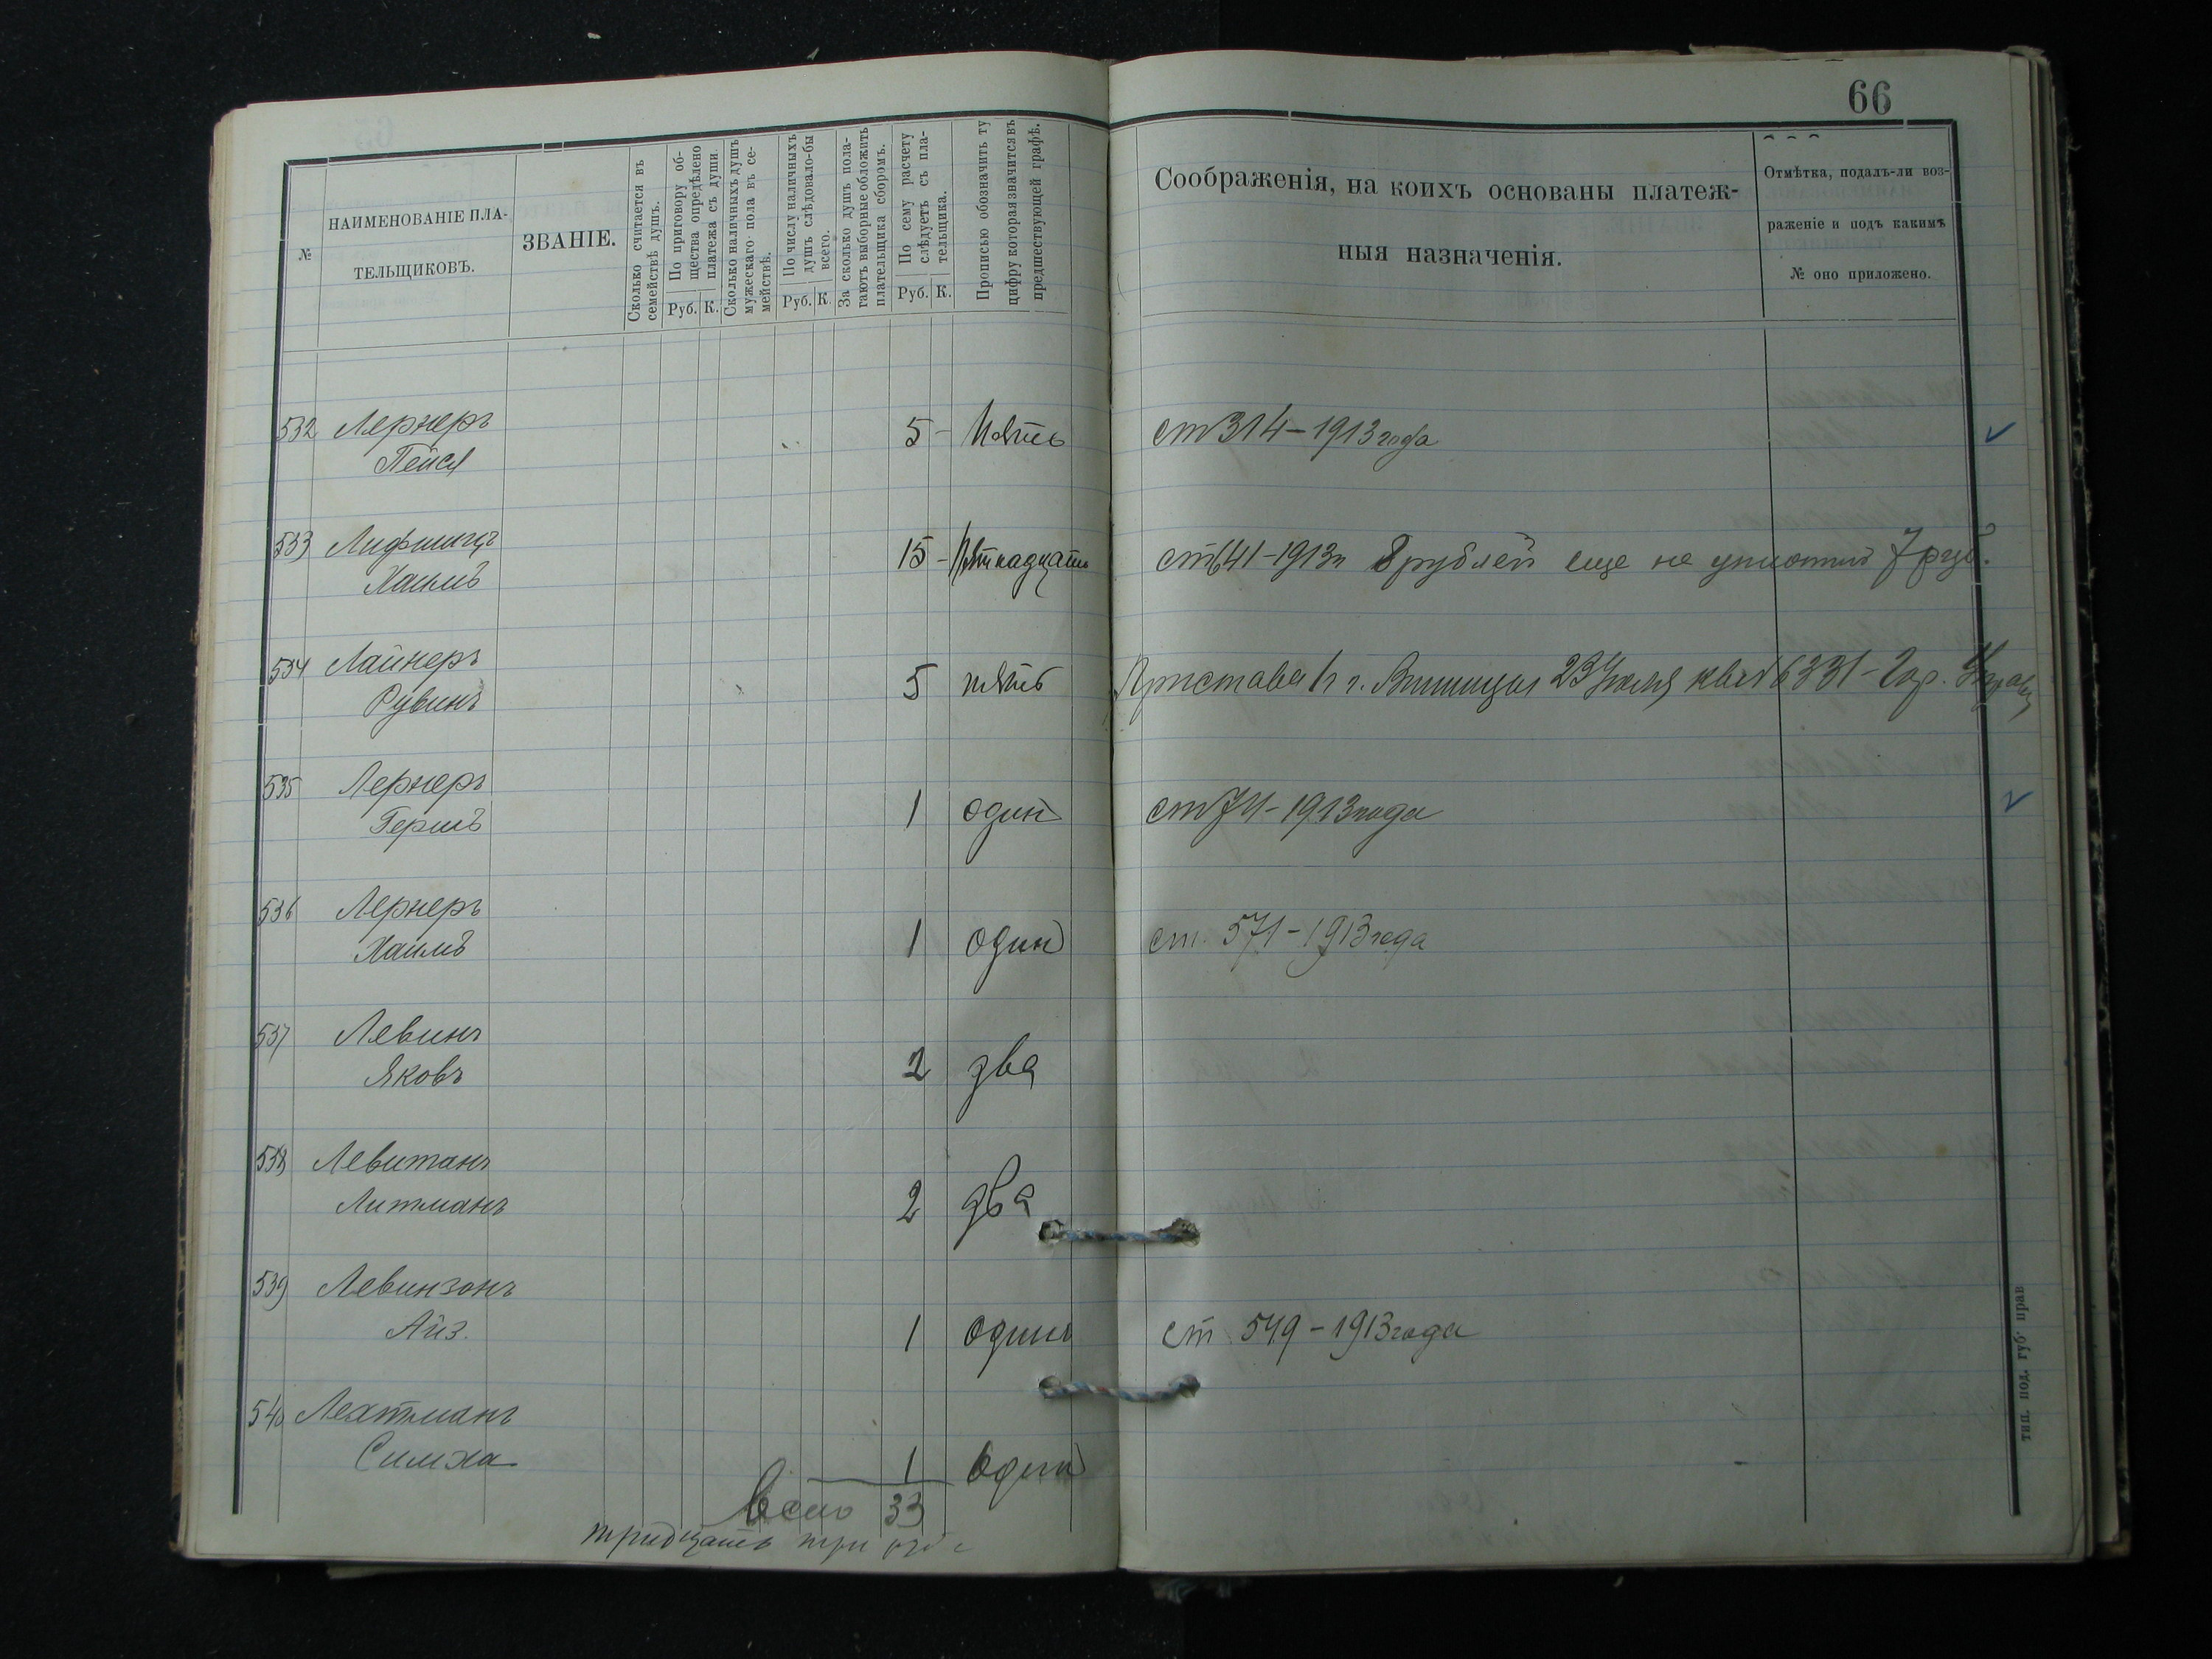 66
№
НАИМЕНОВАНІЕ ПЛА-
ТЕЛЬЩИКОВЪ.
ЗВАНІЕ.
Сколько считается въ
семействѣ душъ.
По приговору об-
щества опредѣлено
платежа съ души.
Руб. К.
Сколько наличныхъ душъ
мужескаго пола въ се-
мействѣ.
По числу наличныхъ
душъ слѣдовало-бы
всего.
Руб. К.
За сколько душъ пола-
гаютъ выборные обложить
плательщика сборомъ.
По сему расчету
слѣдуетъ съ пла-
тельщика.
Руб. К.
Прописью обозначить ту
цифру которая значится въ
предшествующей графѣ.
Соображенія, на коихъ основаны платеж-
ныя назначенія.
Отмѣтка, подалъ-ли воз-
раженіе и подъ какимъ
№ оно приложено.
532 Лернеръ
Пейся 5 - Пять ст 314 - 1913 года
533 Лифшицъ
Хаимъ 15 - Пятнадцать ст 641 - 1913 г 8 рублей еще не уплотил 7 руб.
534 Лайнеръ
Рувинъ 5 пять Пристава г. Винницы 23 Июля 6331 - Гор.
535 Лернеръ
Гершъ 1 один ст 74 - 1913 года
536 Лернеръ
Хаимъ 1 один ст. 571 - 1913 года
537 Левинъ
Яковъ 2 два
538 Левитанъ
Литманъ 2 два
539 Левинзонъ
Айз. 1 один ст 549 - 1913 года
540 Лехтманъ
Симха 1 один
Всего 33
тридцать три руб
тип. под. губ. прав